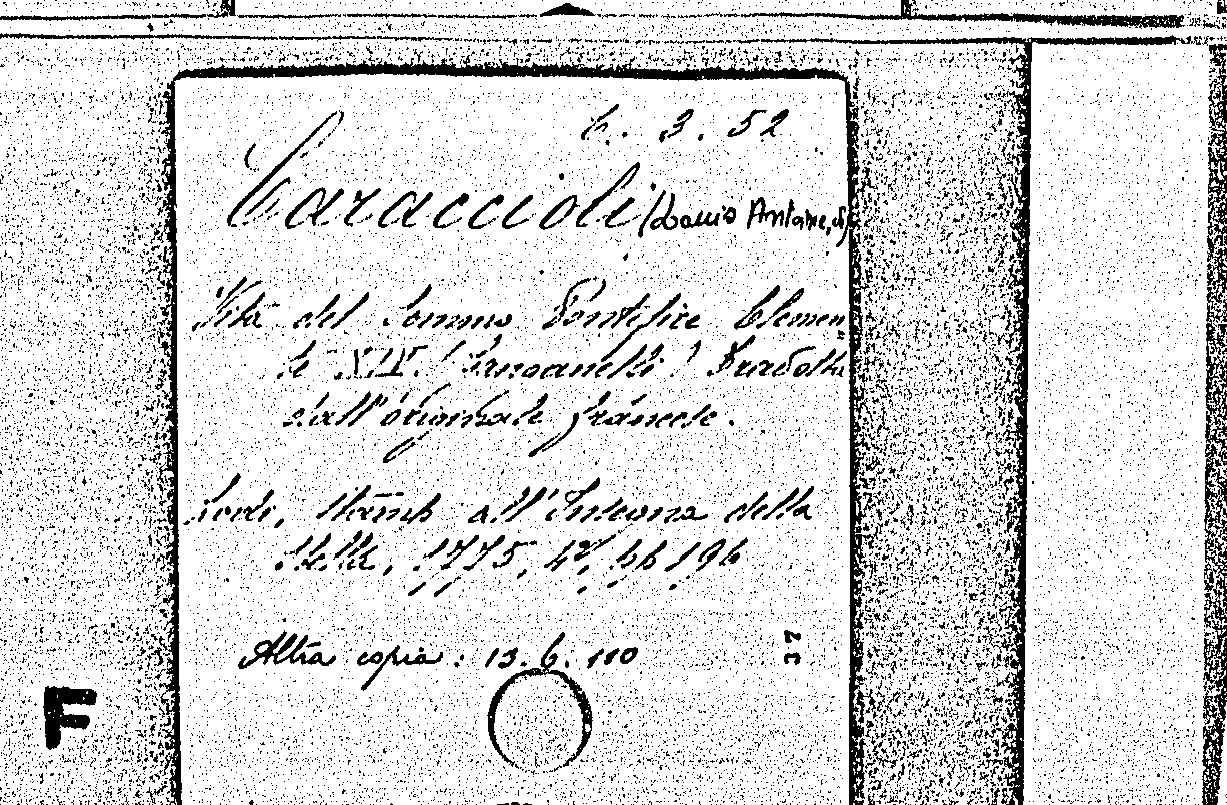 6. 3. 52
Caraccioli (Louis Antoine, de)
Vita del Sommo Pontifice Clemen-
te XIV. (Ganganelli) Tradotta
dall'originale francese.
Lodi, Stamp all'Insegna della
Stella, 1775, 4º, pp 196
Altra copia : 13. 6. 110
37
F